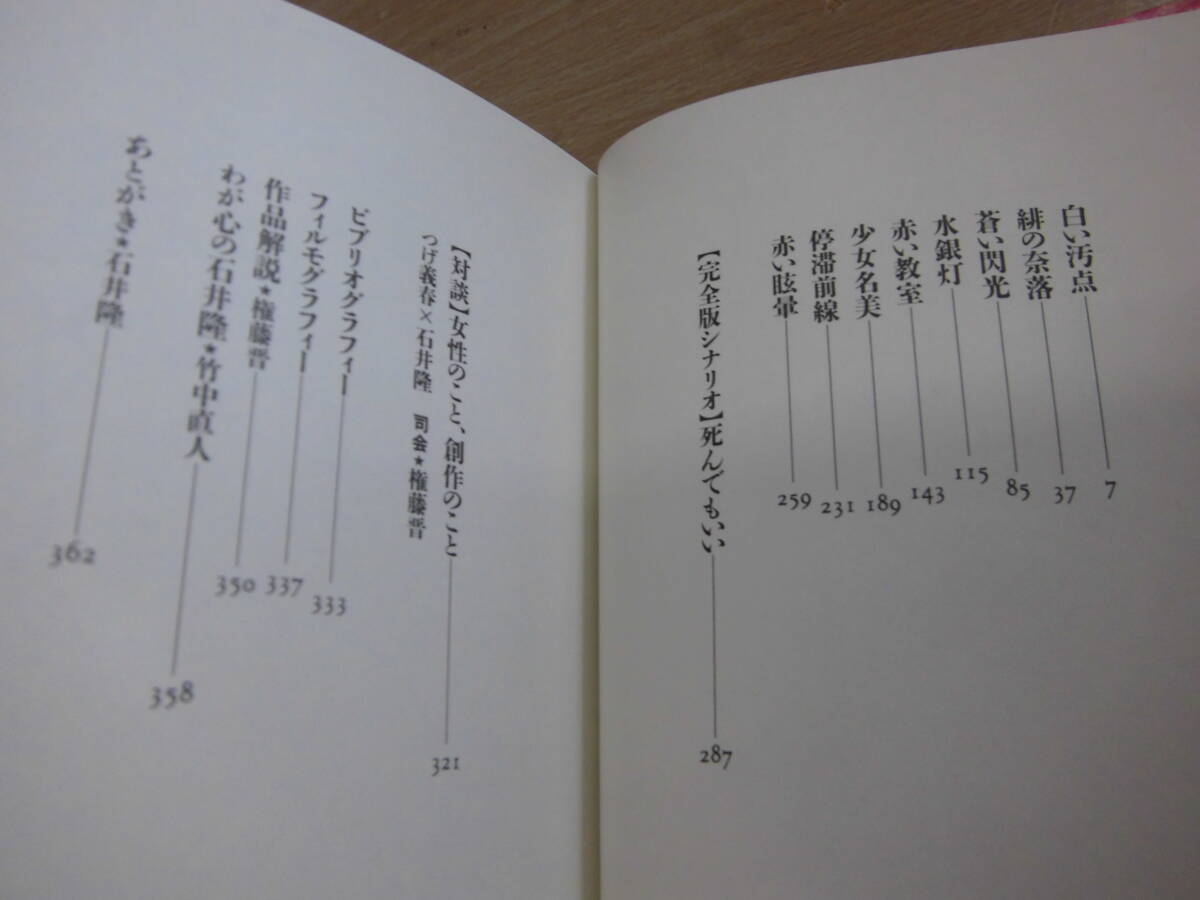 白い汚点 7
緋の奈落 37
蒼い閃光 85
水銀灯 115
赤い教室 143
少女名美 189
停滞前線 231
赤い眩暈 259
【完全版シナリオ】死んでもいい 287
【対談】女性のこと、創作のこと 321
つげ義春×石井隆 司会★権藤晋
ビブリオグラフィー 333
フィルモグラフィー 337
作品解説★権藤晋 350
わが心の石井隆★竹中直人 358
あとがき★石井隆 362